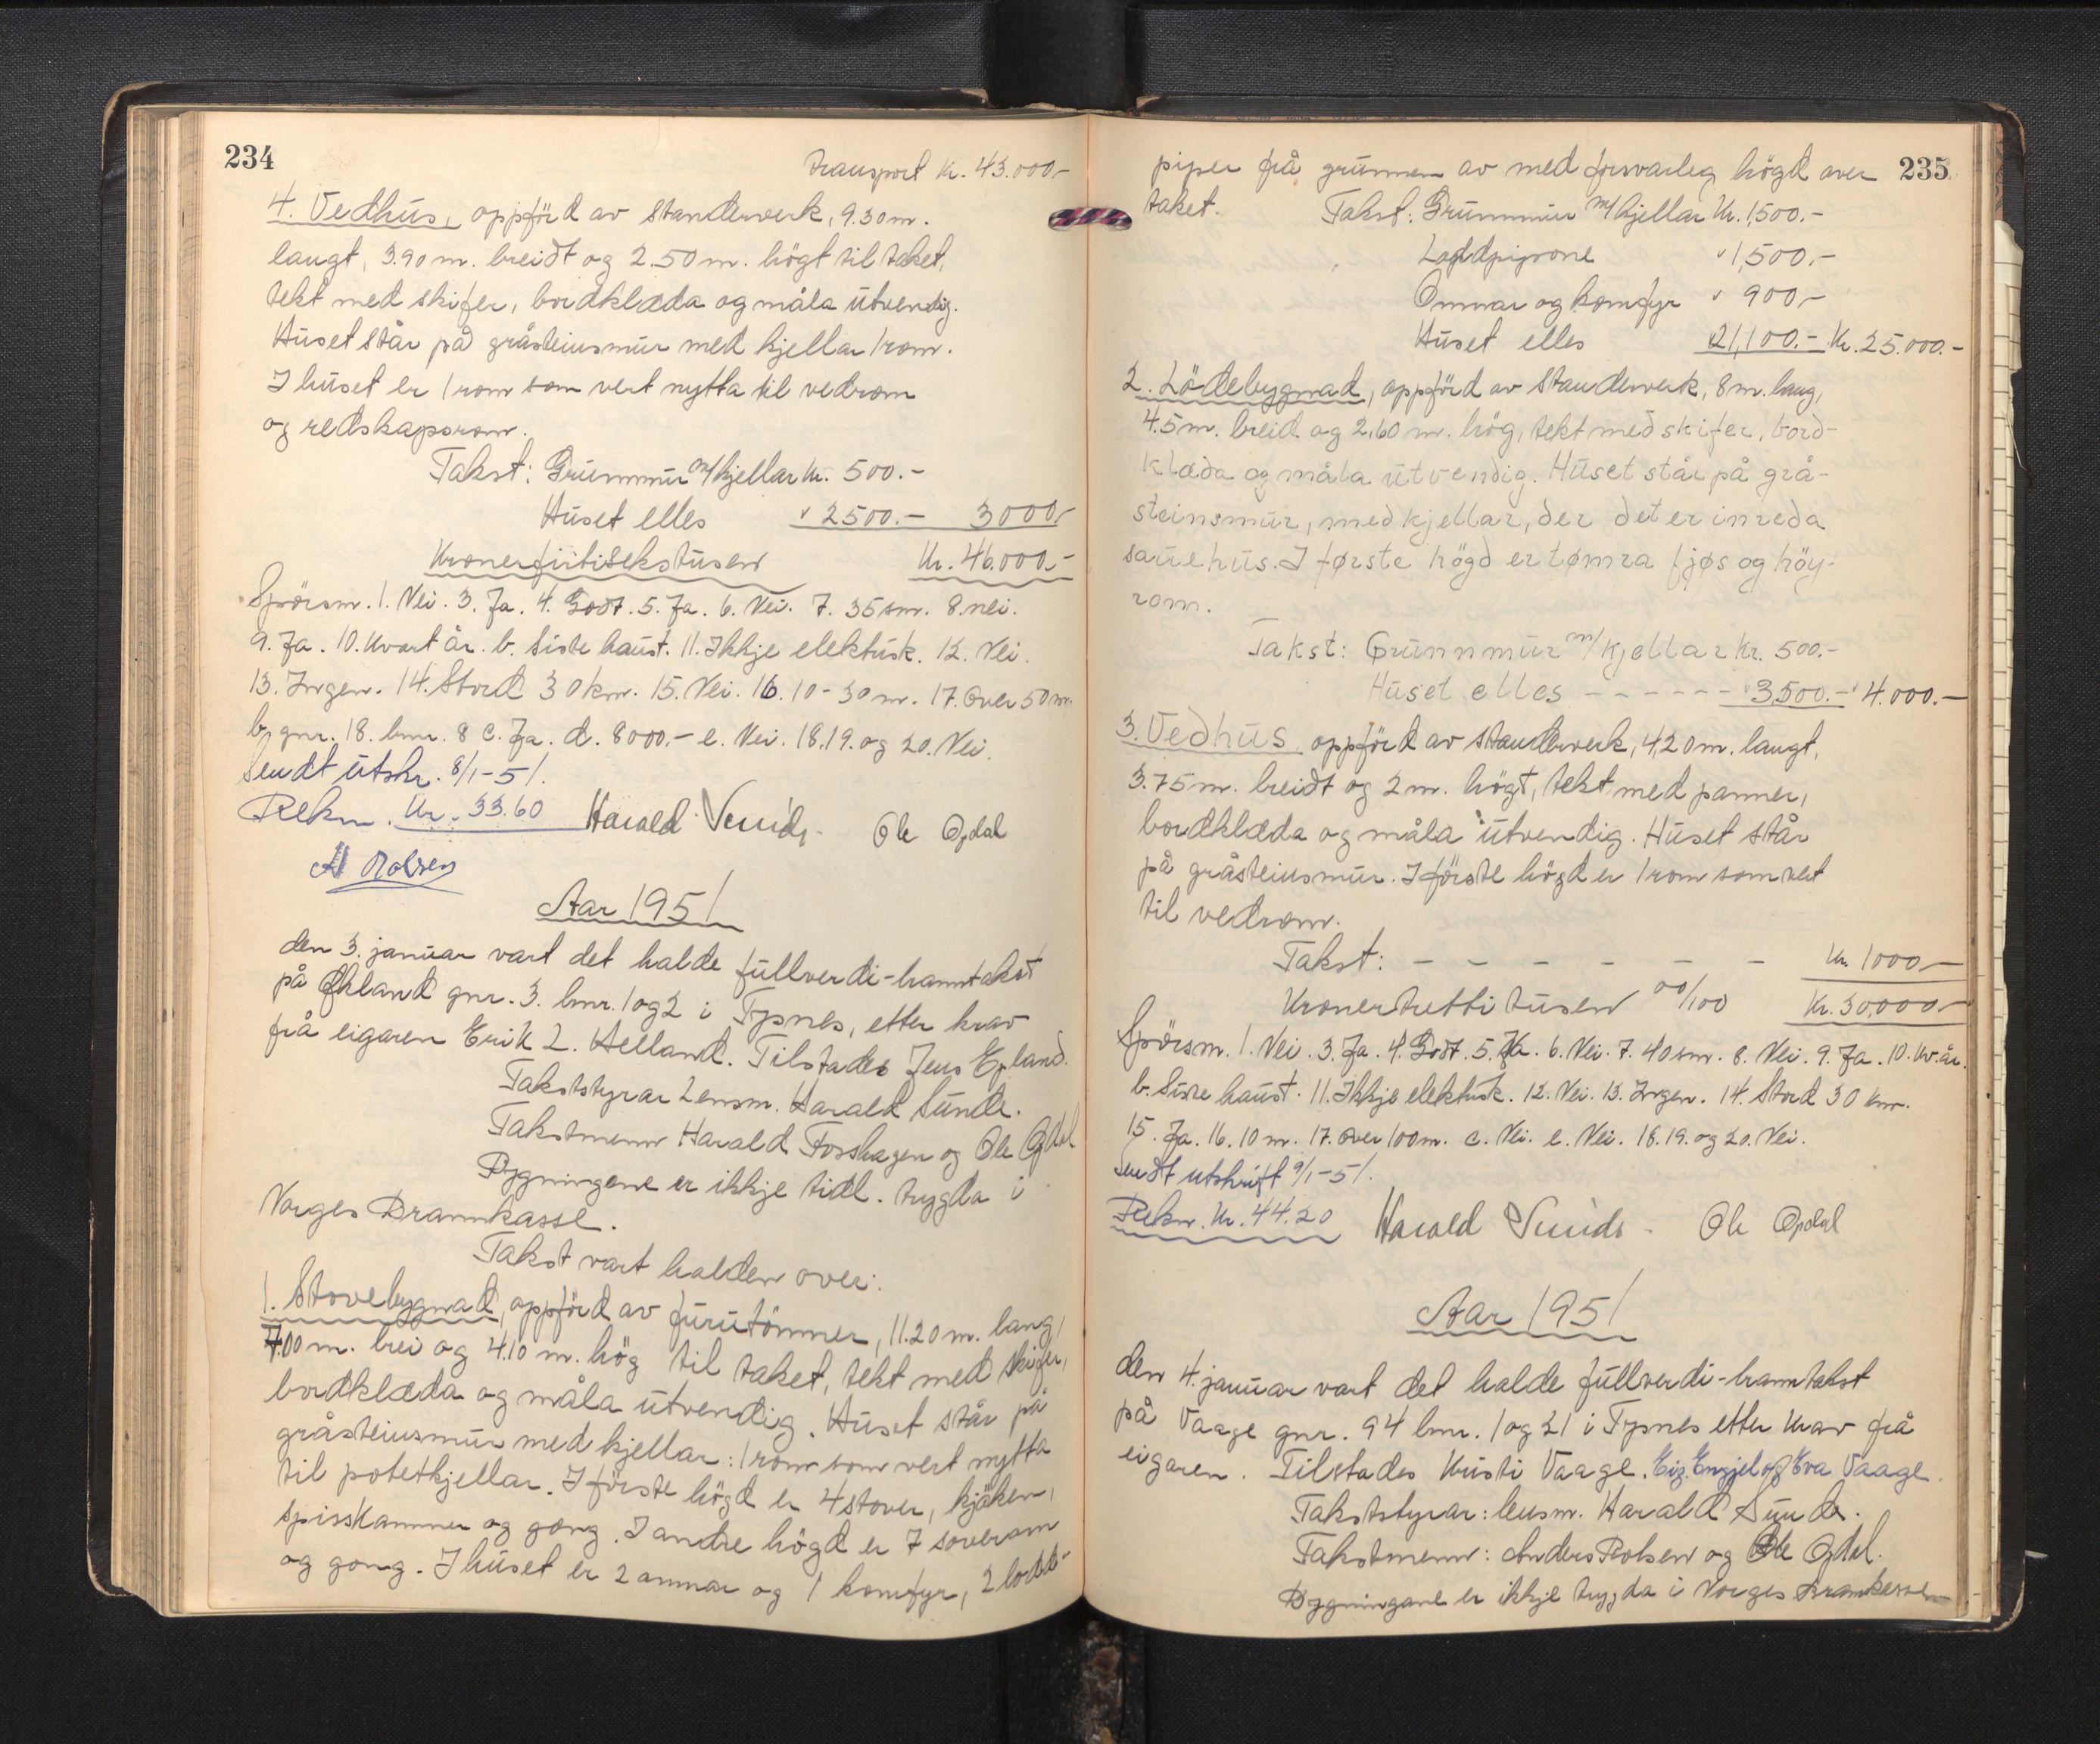 234
Transport kr. 43.000,-
4. Vedhus, oppförd av standerverk, 9.30 m.
langt, 3.90 m. breidt og 2.50 m. högt til taket,
tekt med skifer, bordklæda og måla ūtvendig.
Hūset står på gråsteinsmūr med kjellar 1 rom.
I hūset er 1 rom som vert nytta til vedrom
og redskapsrom.
Takst: Grūnnmūr m/kjellar kr. 500.-
Hūset elles " 2500.- 3000,-
Kronerfürtisekstūsen Kr. 46.000.-
Spörsm. 1. Nei. 3. Ja. 4. Godt. 5. Ja. 6. Nei. 7. 35 sm. 8. nei.
9. Ja. 10. Kvart år. b. Siste haust. 11. Ikkje elektrisk. 12. Nei.
13. Ingen. 14. Stord 30 km. 15. Nei. 16. 10-30 m. 17. Over 50 m.
b. gnr. 18. bnr. 8 c. Ja. d. 8000,- e. Nei. 18.19. og 20. Nei.
Sendt ūtskr. 8/1-51.
Rekn. Kr. 33.60 Harald Sunde. Ole Opdal
A Rolsen
Aar 1951
den 3. janūar vart det halde fūllverdi-branntakst
på Økland gnr. 3. bnr. 1 og 2 i Tysnes, etter krav
frå eigaren Erik L. Helland. Tilstades Jens Epland.
Takststyrar Lensm. Harald Sūnde.
Takstmenn Harald Fosshagen og Ole Opdal
Bygningene er ikkje tidl. trygda i
Norges Brannkasse.
Takst vart halden over:
1. Stovebygnad, oppförd av fūrūtömmer, 11.20 m. lang,
7.00 m. brei og 4.10 m. hög til taket, tekt med skifer,
bordklæda og måla ūtvendig. Hūset står på
gråsteinsmūr med kjellar: 1 rom som vert nytta
til potetkjellar. I förste högd er 4 stover, kjöken,
spisskammer og gang. I andre högd er 7 soverom
og gong. I hūset er 2 omnar og 1 komfyr, 2 lodd-
235
piper frå grūnnen av med forsvarleg högd over
taket. Takst: Grūnnmūr m/kjellar Kr. 1,500.-
Loddpipone " 1,500.-
Omnar og komfyr " 900,-
Hūset elles " 21,100.- Kr. 25.000.-
2. Lödebygnad, oppförd av standerverk, 8 m. lang,
4.5 m. breid og 2,60 m. hög, tekt med skifer, bord-
klæda og måla ūtvendig. Hūset står på grå-
steinsmūr, med kjellar, der det er inreda
saūehūs. I første högd er tømra fjøs og höy-
rom.
Takst: Grūnnmūr m/kjellar Kr. 500.-
Hūset elles - - - - - - " 3,500.- " 4.000.-
3. Vedhūs oppförd av standerverk, 4,20 m. langt,
3.75 m. breidt og 2 m. högt, tekt med panner,
bordklæda og måla ūtvendig. Hūset står
på gråsteinsmūr. I förste högd er 1 rom som vert
til vedrom.
Takst: - - - - - - Kr. 1000,-
Kronertrettitūsen 00/100 Kr. 30,000-
Spörsm. 1. Nei. 3. Ja. 4. Godt. 5. Ja. 6. Nei. 7. 40 sm. 8. Nei. 9. Ja. 10. Kv.år.
b. Siste haust. 11. Ikkje elektrisk. 12. Nei. 13. Ingen. 14. Stord 30 km.
15. Ja. 16. 10 m. 17. Over 100 m. c. Nei. e. Nei. 18.19. og 20. Nei.
Sendt utskrift 9/1-51.
Rekn. Kr. 44.20 Harald Sunde. Ole Opdal
Aar 1951
den 4. janūar vart det halde fūllverdi-branntakst
på Vaage gnr. 94 bnr. 1 og 21 i Tysnes etter krav frå
eigaren. Tilstades Kristi Vaage. Eig. Engjel og Eva Vaage.
Takststyrar: lensm. Harald Sunde.
Takstmenn: Anders Rolsen og Ole Opdal.
Bygningane er ikkje trygda i Norges Brankasse